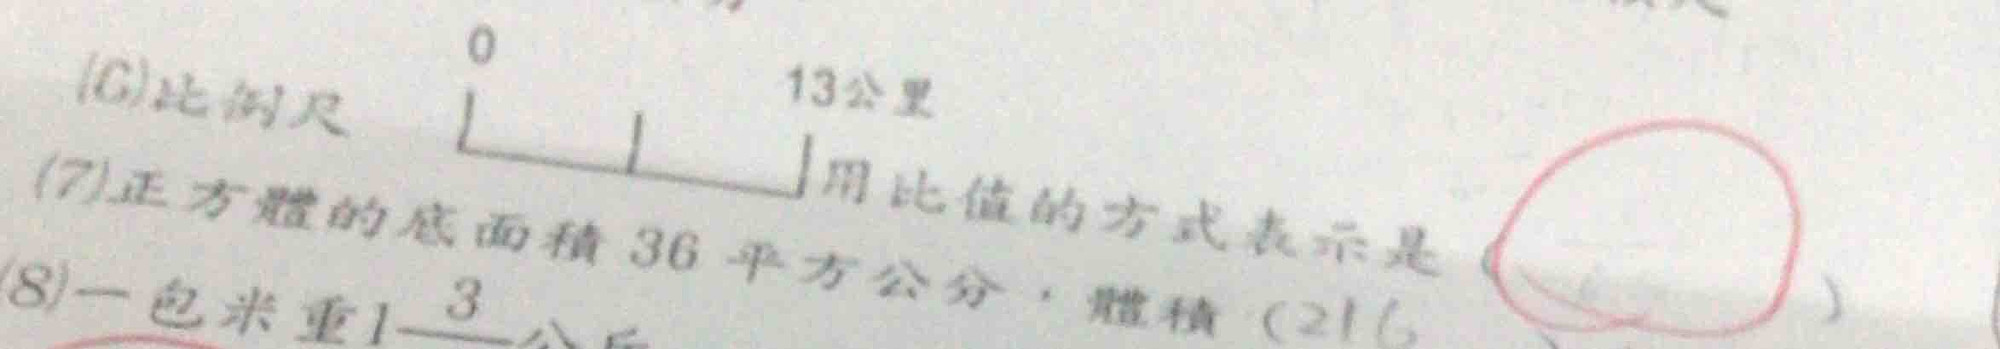 0
13公里
(6)比例尺 用比值的方式表示是( )
(7)正方體的底面積 36 平方公分,體積 (216
(8)一包米重1 3 公斤